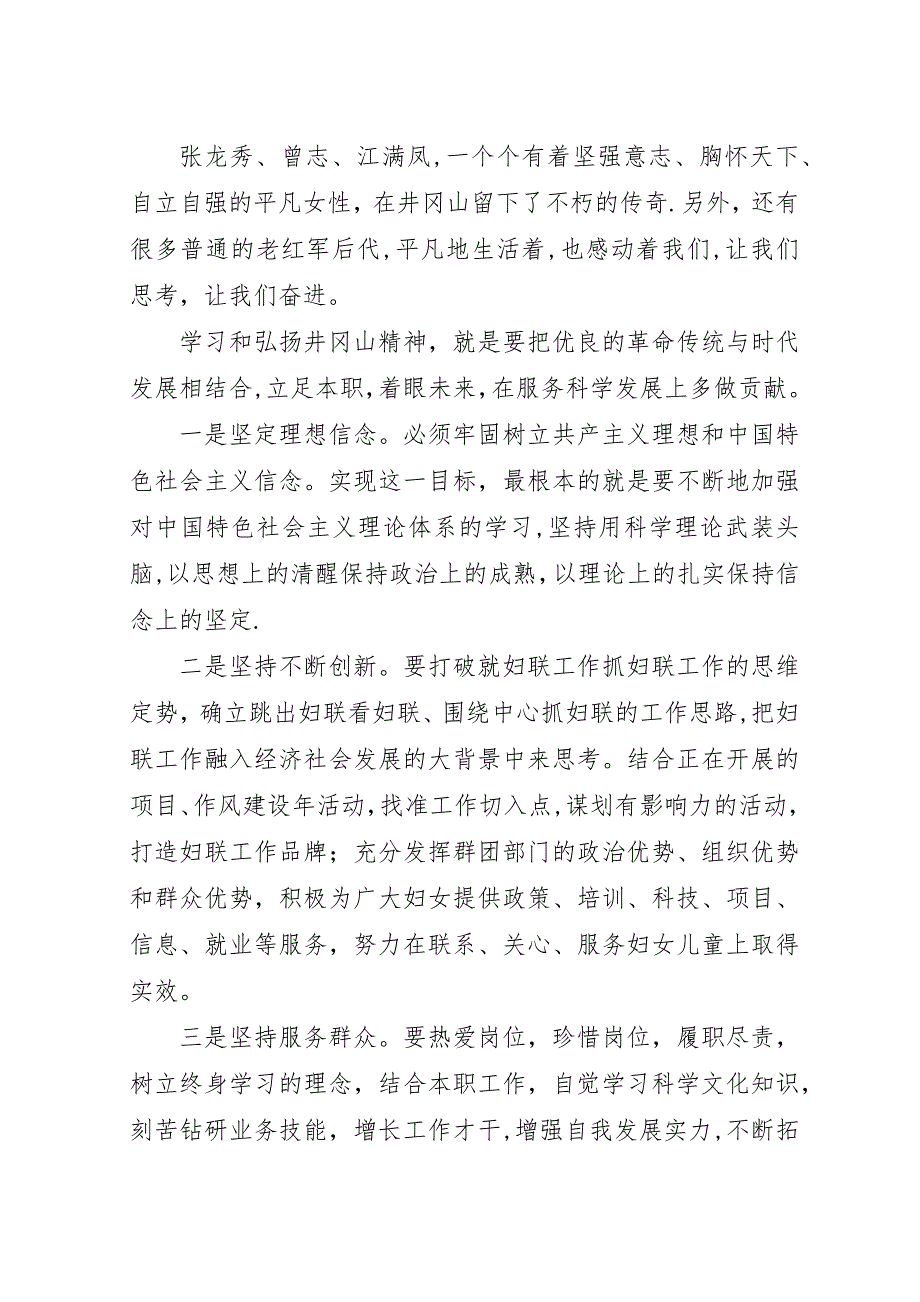 张龙秀、曾志、江满凤,一个个有着坚强意志、胸怀天下、
自立自强的平凡女性，在井冈山留下了不朽的传奇.另外，还有
很多普通的老红军后代,平凡地生活着,也感动着我们,让我们
思考，让我们奋进。
学习和弘扬井冈山精神，就是要把优良的革命传统与时代
发展相结合,立足本职,着眼未来,在服务科学发展上多做贡献。
一是坚定理想信念。必须牢固树立共产主义理想和中国特
色社会主义信念。实现这一目标，最根本的就是要不断地加强
对中国特色社会主义理论体系的学习,坚持用科学理论武装头
脑,以思想上的清醒保持政治上的成熟，以理论上的扎实保持信
念上的坚定.
二是坚持不断创新。要打破就妇联工作抓妇联工作的思维
定势，确立跳出妇联看妇联、围绕中心抓妇联的工作思路,把妇
联工作融入经济社会发展的大背景中来思考。结合正在开展的
项目、作风建设年活动,找准工作切入点,谋划有影响力的活动，
打造妇联工作品牌；充分发挥群团部门的政治优势、组织优势
和群众优势，积极为广大妇女提供政策、培训、科技、项目、
信息、就业等服务，努力在联系、关心、服务妇女儿童上取得
实效。
三是坚持服务群众。要热爱岗位，珍惜岗位，履职尽责，
树立终身学习的理念，结合本职工作，自觉学习科学文化知识，
刻苦钻研业务技能，增长工作才干,增强自我发展实力,不断拓